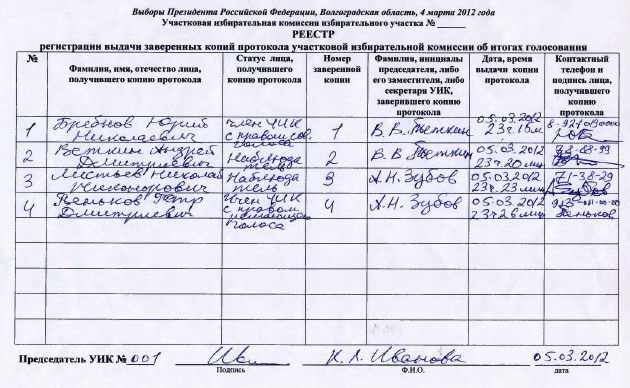 Выборы Президента Российской Федерации, Волгоградская область, 4 марта 2012 года
Участковая избирательная комиссия избирательного участка № _____
РЕЕСТР
регистрации выдачи заверенных копий протокола участковой избирательной комиссии об итогах голосования
№ Фамилия, имя, отчество лица, получившего копию протокола Статус лица, получившего копию протокола Номер заверенной копии Фамилия, инициалы председателя, либо его заместителя, либо секретаря УИК, заверившего копию протокола Дата, время выдачи копии протокола Контактный телефон и подпись лица, получившего копию протокола
1 Юрий Николаевич член УИК с правом сов. голоса 1 В.В. 05.03.2012 23ч.15м
2 Веткин Андрей Дмитриевич Наблюдатель 2 В.В 05.03.2012 23ч.20мин 38-83-99
3 Листьев Николай Никонорович Наблюдатель 3 А.Н. Зубов 05.03.2012 23ч.23мин 71-38-29
4 Пеньков Петр Дмитриевич Член УИК с правом решающего голоса 4 А.Н. Зубов 05.03.2012 23ч26мин Пеньков
Председатель УИК № 001 К.Л. Иванова 05.03.2012
Подпись Ф.И.О. дата